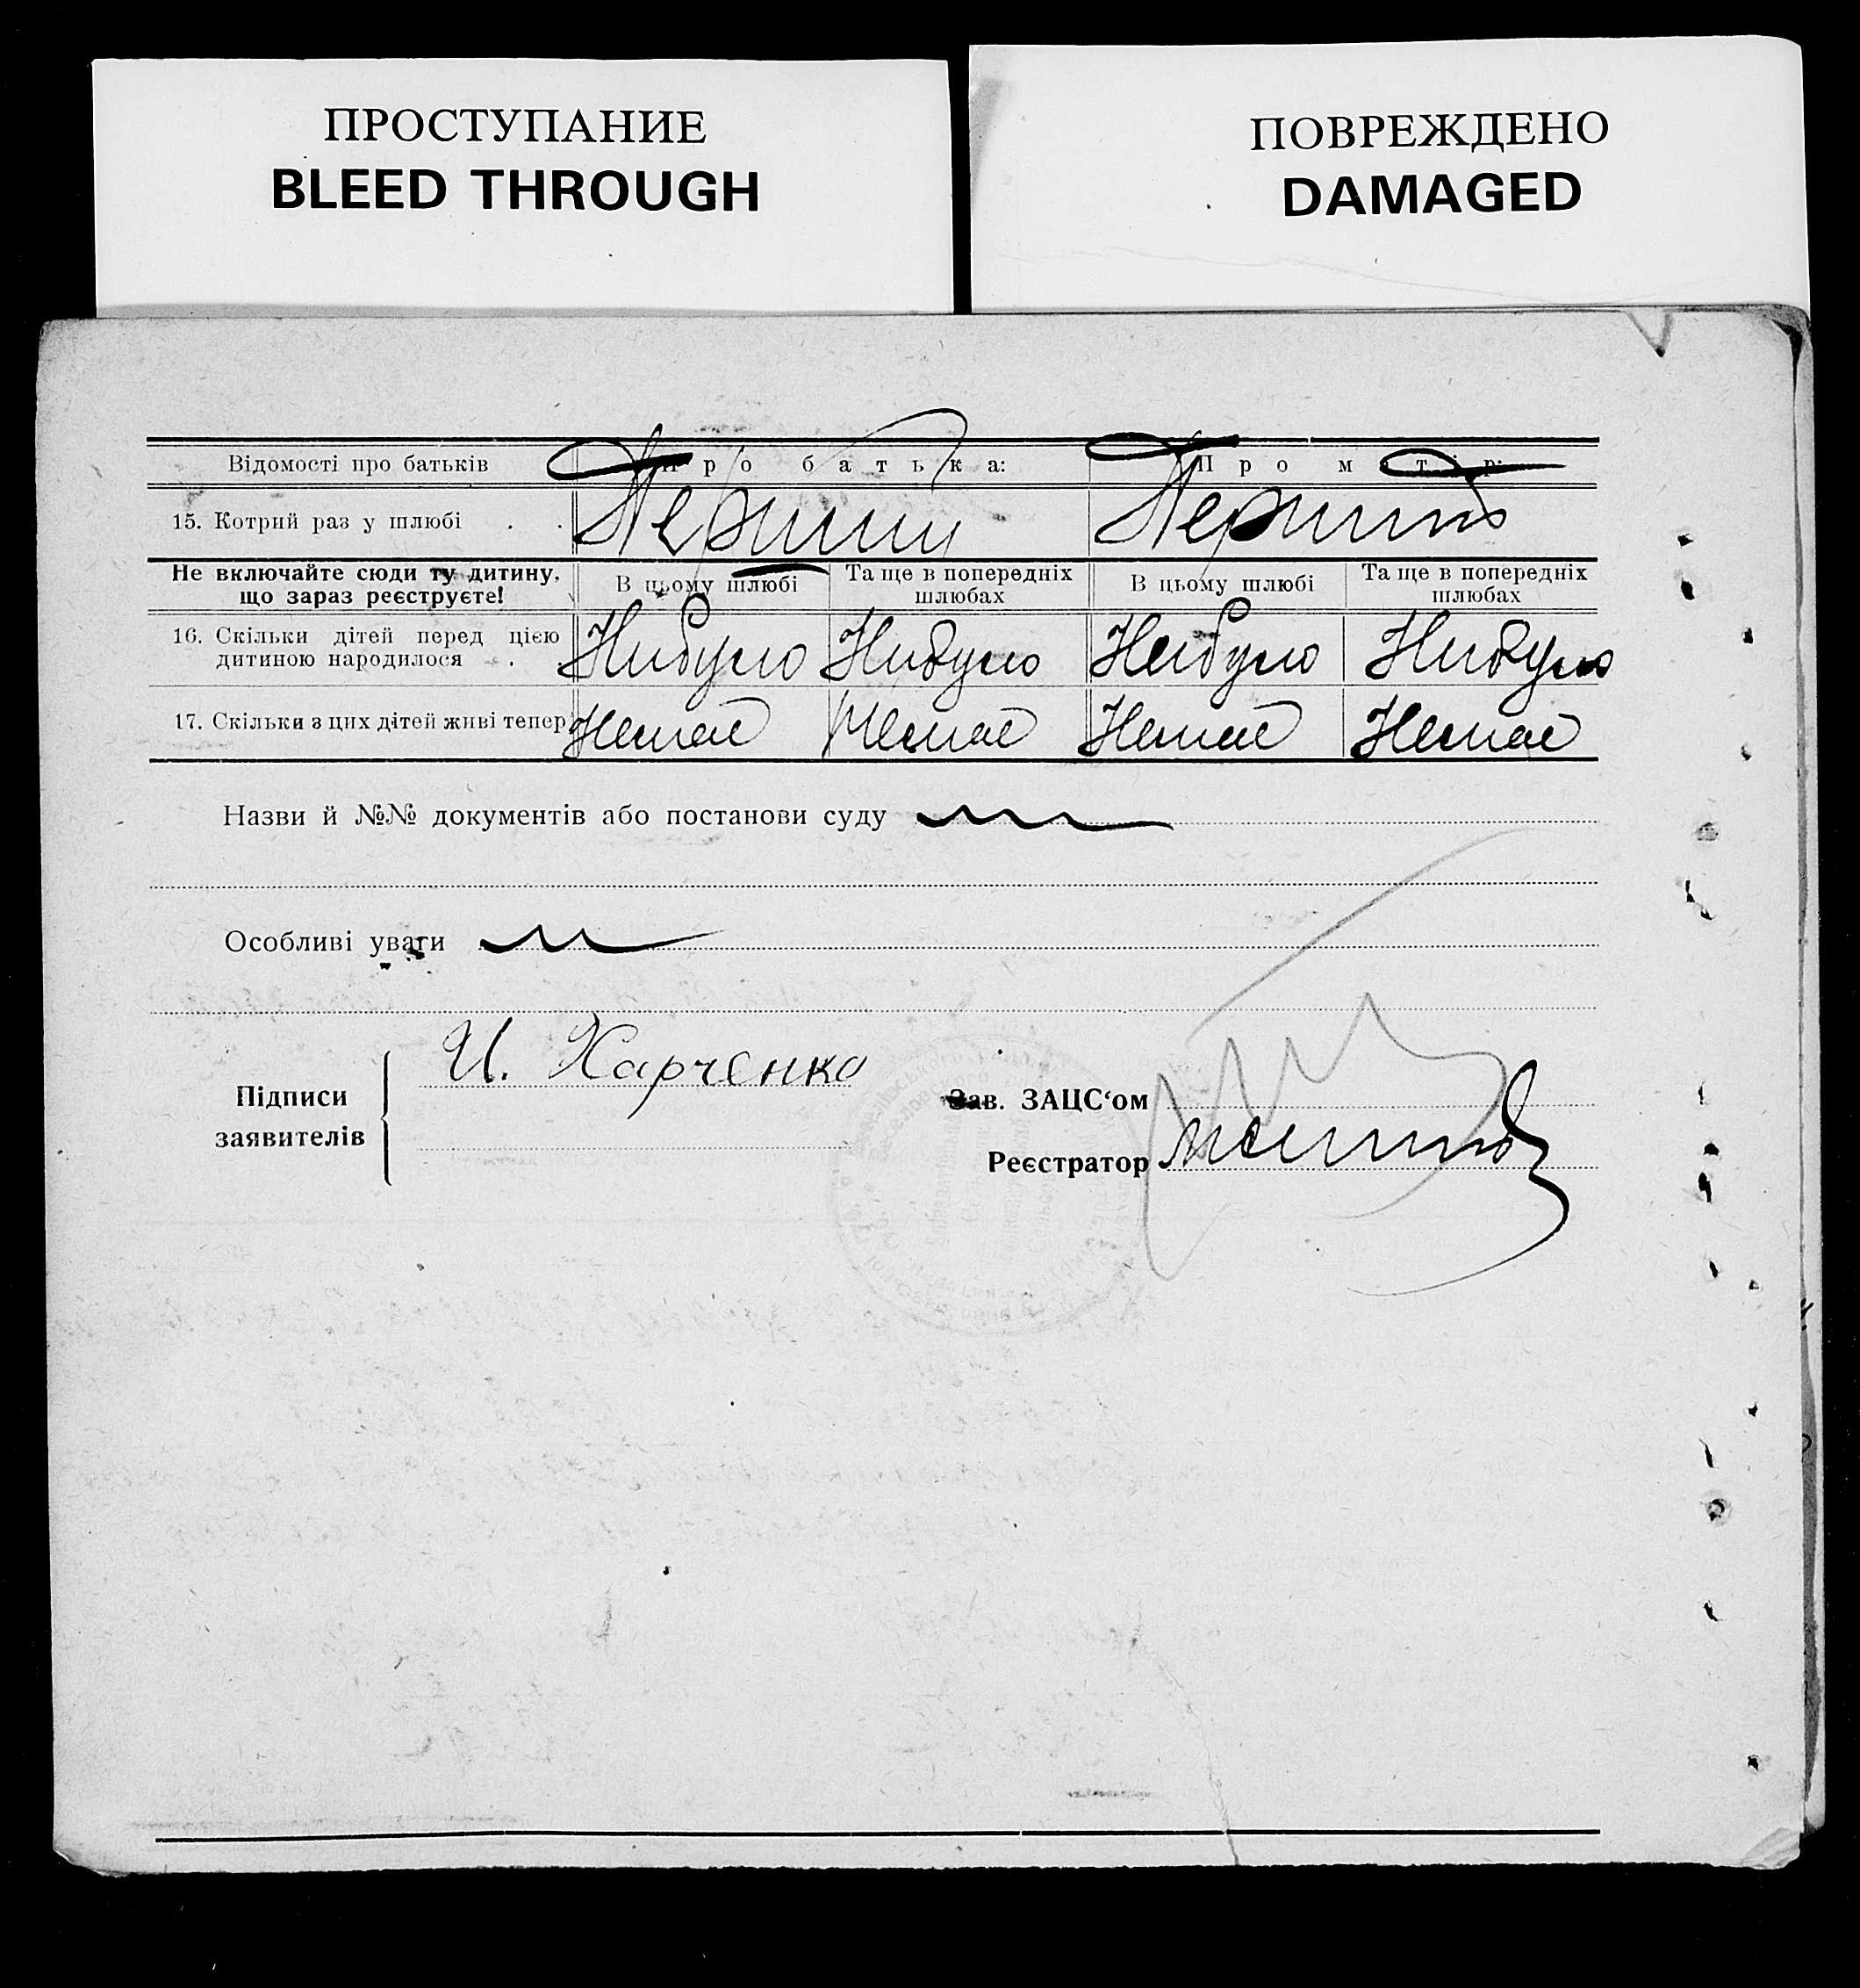 ПРОСТУПАНИЕ
BLEED THROUGH
ПОВРЕЖДЕНО
DAMAGED
Відомості про батьків Про батька: Про матір:
15. Котрий раз у шлюбі . . Перший Перший
Не включайте сюди ту дитину, що зараз реєструєте! В цьому шлюбі Та ще в попередніх шлюбах В цьому шлюбі Та ще в попередніх шлюбах
16. Скільки дітей перед цією
дитиною народилося . . Нибуло Нибуло Небуло Нибуло
17. Скільки з цих дітей живі тепер Немає Немає Немає Немає
Назви й №№ документів або постанови суду
Особливі уваги
И. Харченко
Підписи
заявителів
Зав. ЗАЦС‘ом
Реєстратор